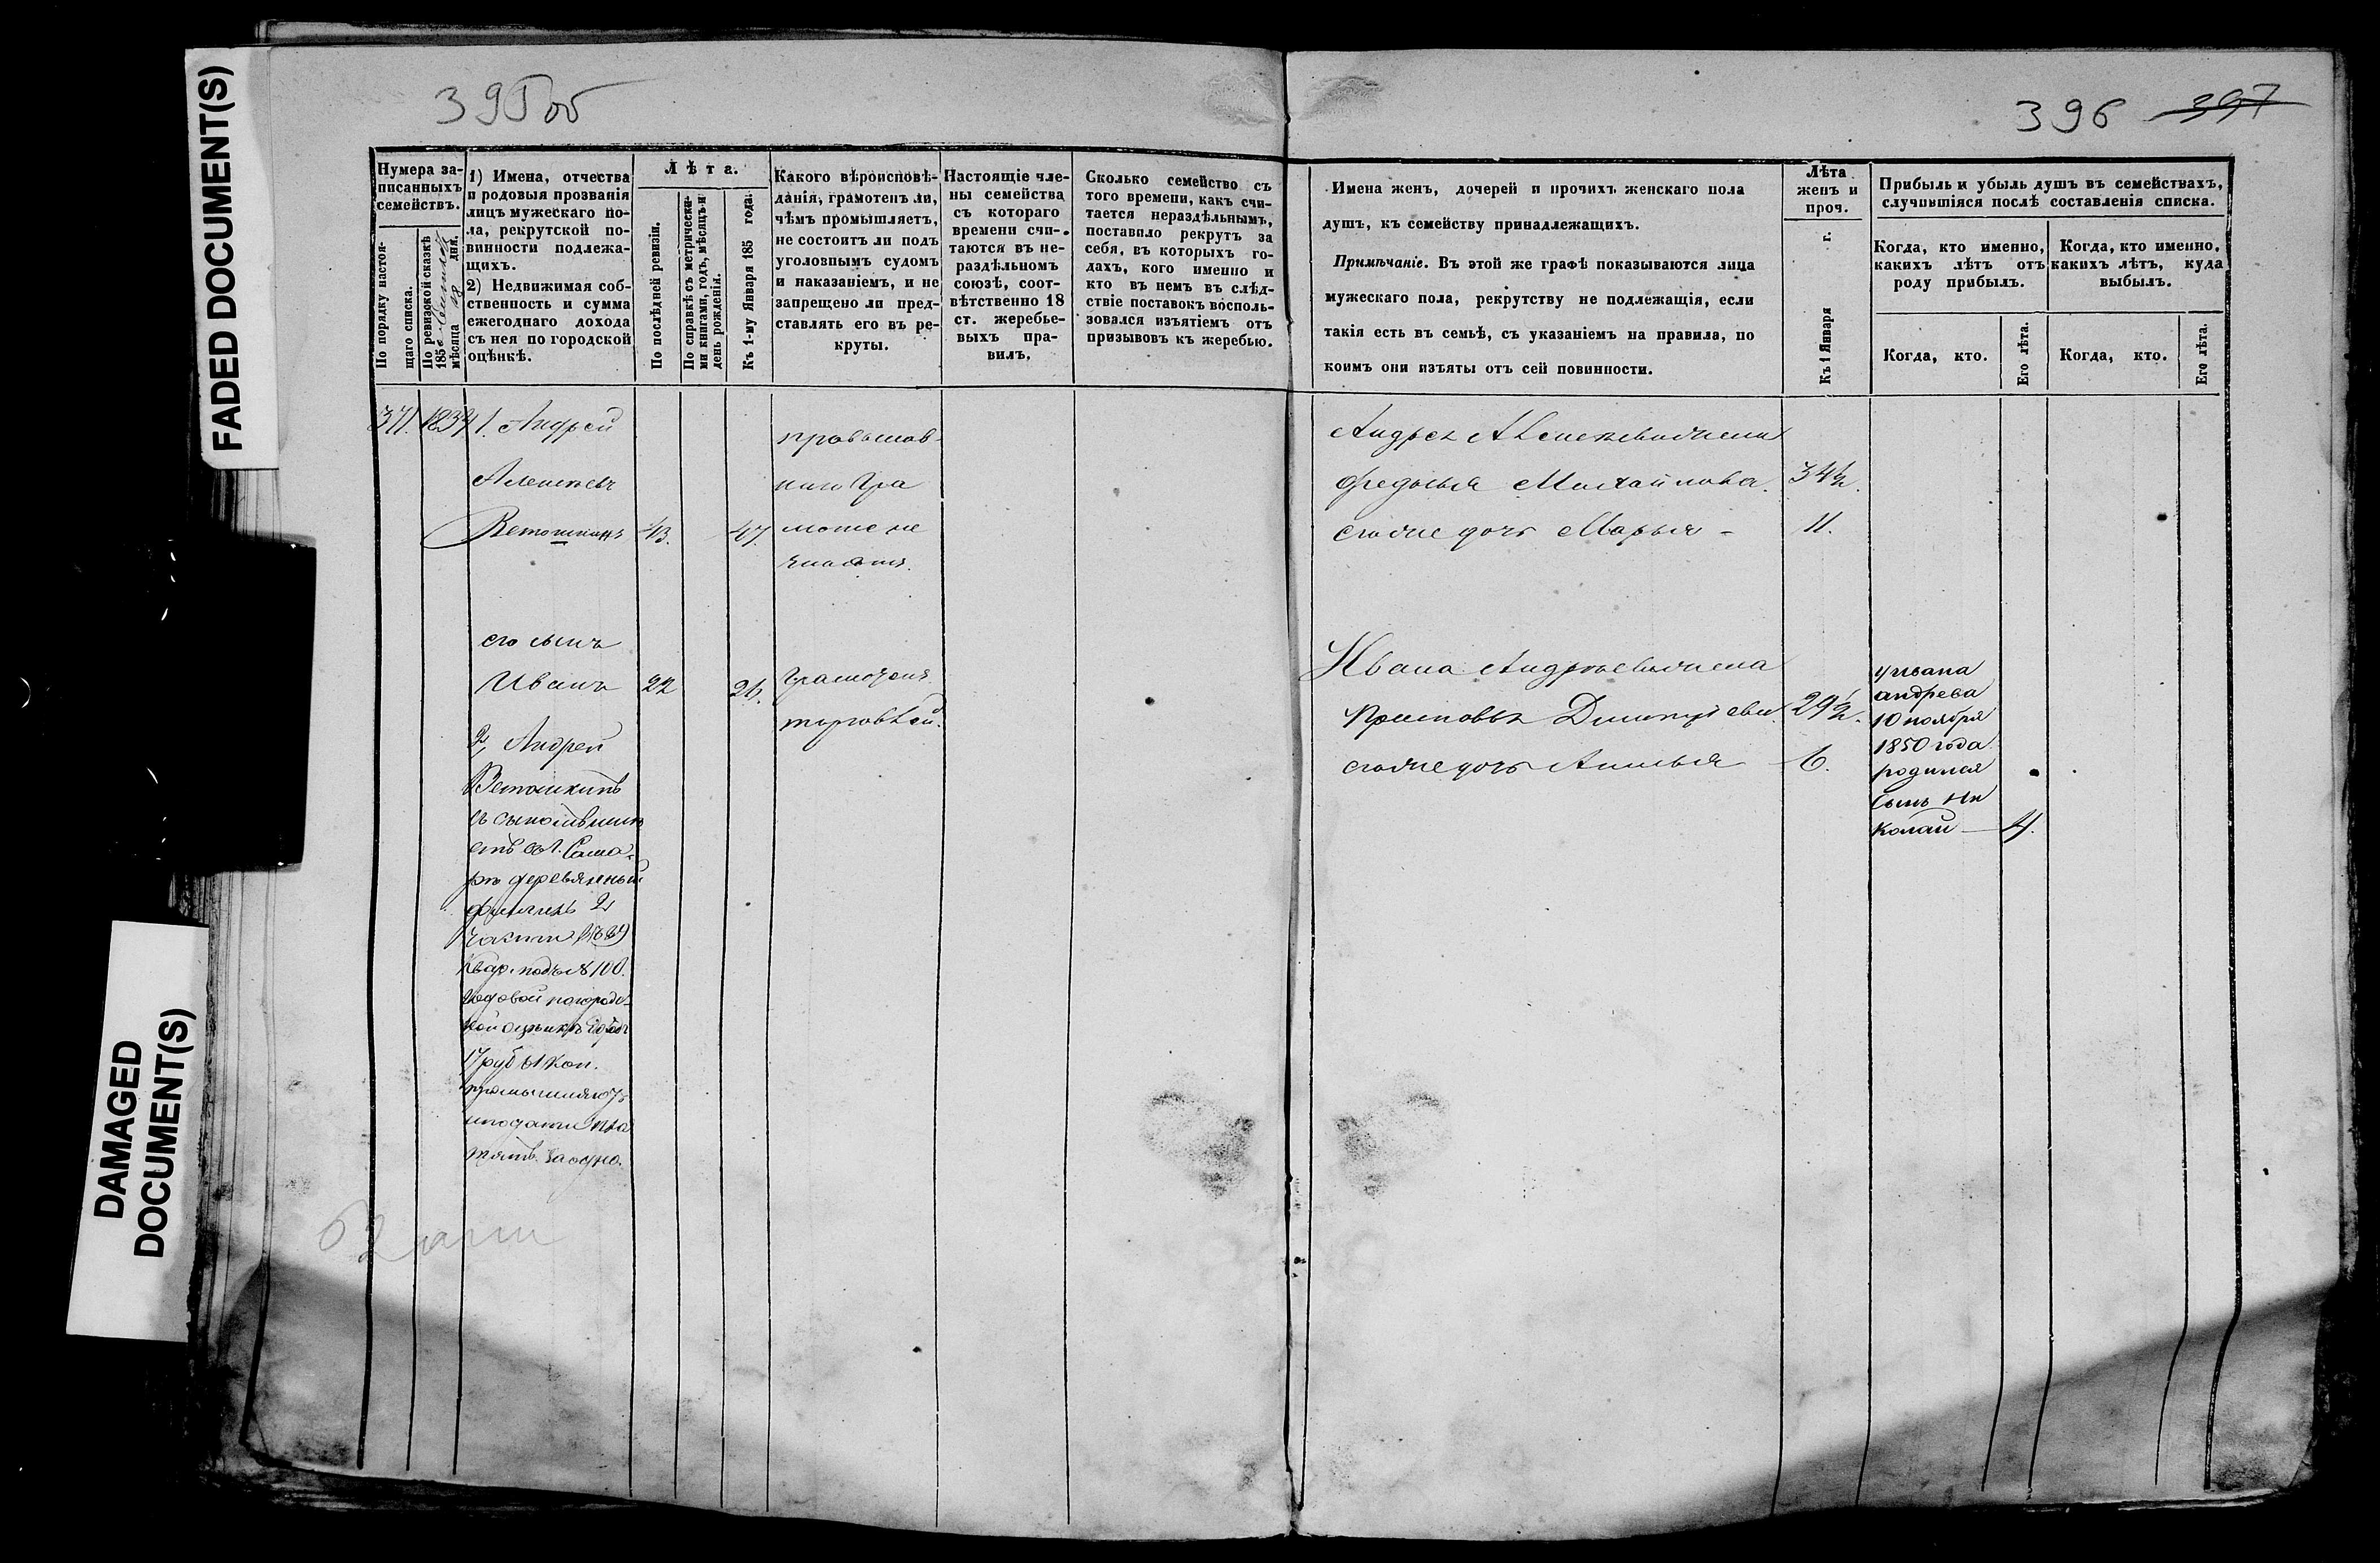 FADED DOCUMENT(S)
DAMAGED
DOCUMENT(S)
395 об
Нумера за-
писанныхъ
семействъ.
По порядку настоя-
щаго списка.
По ревизской сказкѣ
185
мѣсяца
дня.
1) Имена, отчества
и родовыя прозванія
лицъ мужескаго по-
ла, рекрутской по-
винности подлежа-
щихъ.
2) Недвижимая соб-
ственность и сумма
ежегоднаго дохода
съ нея по городской
оцѣнкѣ.
Лѣта.
По послѣдней ревизіи.
По справкѣ съ метрически-
ми книгами, годъ, мѣсяцъ и
день рожденія.
Къ 1-му Января 185 года.
Какого вѣроисповѣ-
данія, грамотенъ ли,
чѣмъ промышляетъ,
не состоитъ ли подъ
уголовнымъ судомъ
и наказаніемъ, и не
запрещено ли пред-
ставлять его въ ре-
круты.
Настоящіе чле-
ны семейства
съ котораго
времени счи-
таются въ не-
раздѣльномъ
союзѣ, соот-
вѣтственно 18
ст. жеребье-
выхъ пра-
вилъ.
Сколько семейство съ
того времени, какъ счи-
тается нераздѣльнымъ,
поставило рекрутъ за
себя, въ которыхъ го-
дахъ, кого именно и
кто въ немъ въ слѣд-
ствіе поставокъ восполь-
зовался изъятіемъ отъ
призывовъ къ жеребью.
371. 1834 1. Андрей
Алексѣевъ
Ветошкинъ 43. 47.
православ-
наго Гра
моте не
знаетъ.
его сынъ
Иванъ 22 26.
Грамотенъ
торговлей.
2, Андрей
Ветошкинъ
съ сыномъ имѣ
етъ въ г. Сама-
рѣ деревянный
флигель 2
части
квар. подъ № 100.
годовой по город-
ской оцѣнкѣ доходъ
17 руб 61 коп.
промышляютъ
и подати пла
тятъ заодно.
396 397
Имена женъ, дочерей и прочихъ женскаго пола
душъ, къ семейству принадлежащихъ.
Примѣчаніе. Въ этой же графѣ показываются лица
мужескаго пола, рекрутству не подлежащія, если
такія есть въ семьѣ, съ указаніемъ на правила, по
коимъ они изъяты отъ сей повинности.
Лѣта
женъ и
проч.
Къ 1 Января г.
Прибыль и убыль душъ въ семействахъ,
случившіяся послѣ составленія списка.
Когда, кто именно,
какихъ лѣтъ отъ
роду прибылъ.
Когда, кто именно,
какихъ лѣтъ, куда
выбылъ.
Когда, кто.
Его лѣта.
Когда, кто.
Его лѣта.
Андрея Алексѣева жена
Федосья Михайлова. 34½.
его же дочь Марья - 11.
Ивана Андрѣева жена
Дмитріева. 29½.
его же дочь 6.
у Ивана
андреева
10 ноября
1850 года
родился
сынъ Ни
колай — 4.